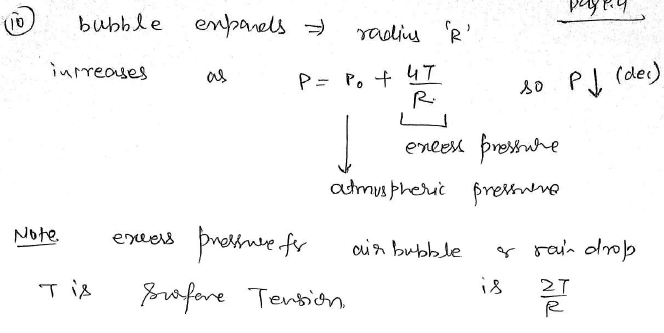 Page.4
(10) bubble expands ⇒ radius 'R'
increases as P = P₀ + 4T/R so P↓ (dec)
excess pressure
atmuspheric pressure
Note excess pressure for air bubble or rain drop
T is Surface Tension. is 2T/R